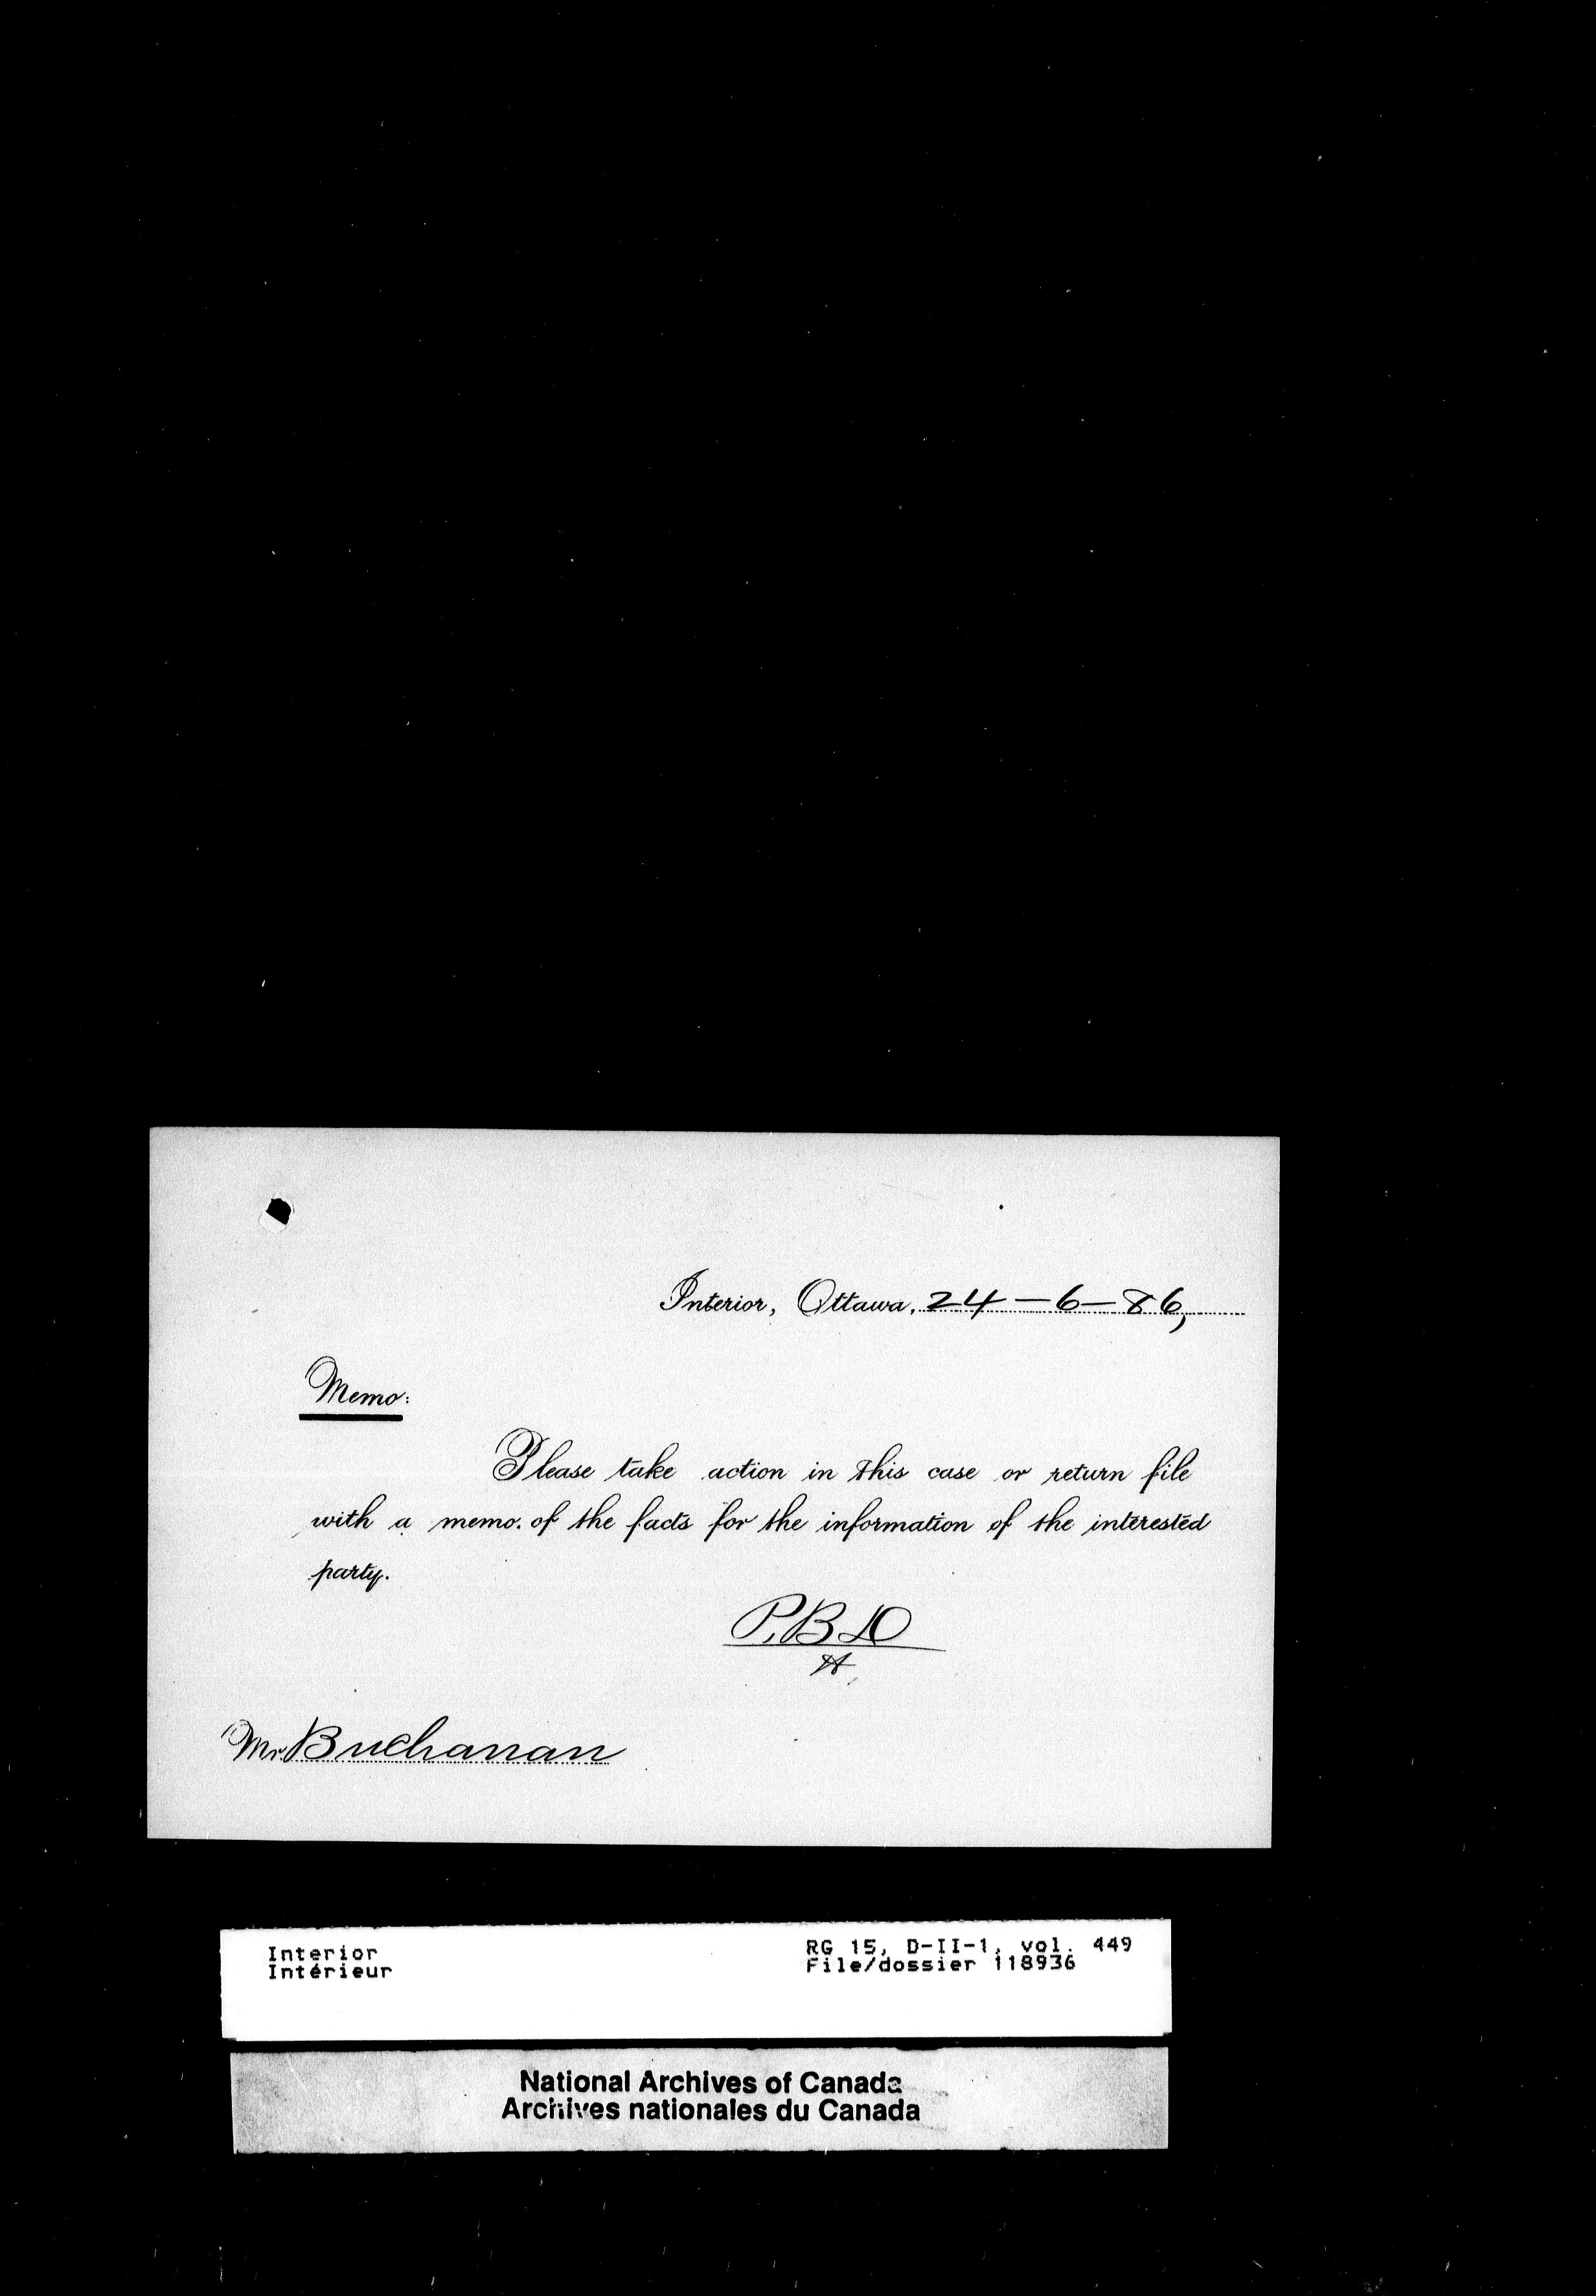 Interior, Ottawa, 24-6-86,
Memo:
Please take action in this case or return file
with a memo. of the facts for the information of the interested
party.
P.B.D
Mr. Buchanan
Interior
Intérieur
RG 15, D-II-1, vol. 449
File/dossier 118936
National Archives of Canada
Archives nationales du Canada